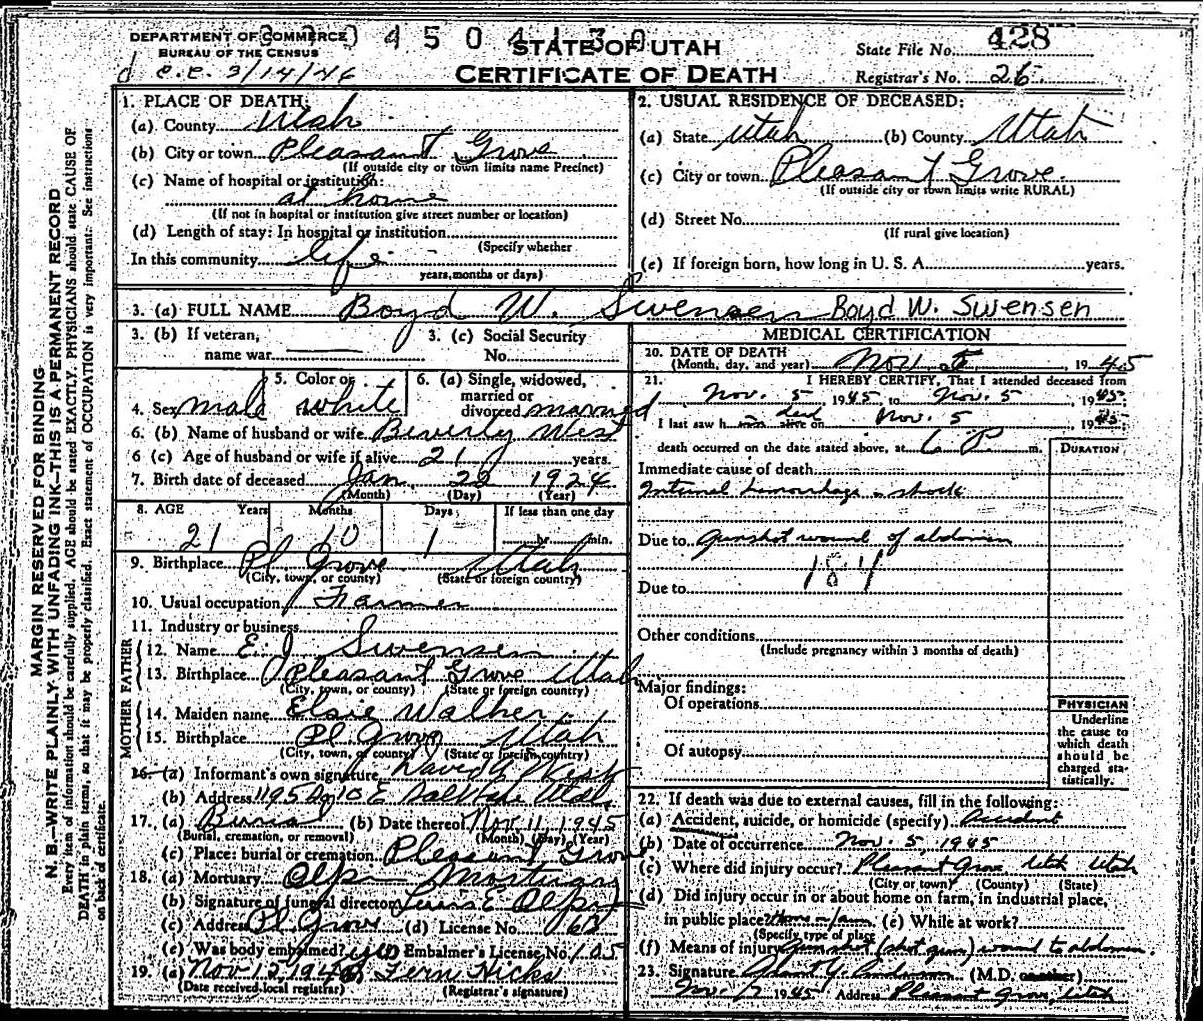 DEPARTMENT OF COMMERCE
BUREAU OF THE CENSUS
4 5 0 4 1 3 0
c.c. 3/14/46
STATE OF UTAH
CERTIFICATE OF DEATH
State File No. 428
Registrar's No. 26
MARGIN RESERVED FOR BINDING
N. B.—WRITE PLAINLY WITH UNFADING INK—THIS IS A PERMANENT RECORD
Every item of information should be carefully supplied. AGE should be stated EXACTLY. PHYSICIANS should state CAUSE OF
DEATH in plain terms, so that it may be properly classified. Exact statement of OCCUPATION is very important. See instructions
on back of certificate.
1. PLACE OF DEATH:
(a) County Utah
(b) City or town Pleasant Grove
(If outside city or town limits name Precinct)
(c) Name of hospital or institution:
at home
(If not in hospital or institution give street number or location)
(d) Length of stay: In hospital or institution
(Specify whether
In this community life
years, months or days)
2. USUAL RESIDENCE OF DECEASED:
(a) State Utah (b) County Utah
(c) City or town Pleasant Grove
(If outside city or town limits write RURAL)
(d) Street No.
(If rural give location)
(e) If foreign born, how long in U. S. A. years.
3. (a) FULL NAME Boyd W. Swensen Boyd W. Swensen
3. (b) If veteran, 3. (c) Social Security
name war No.
4. Sex male 5. Color or white 6. (a) Single, widowed,
married or
divorced married
6. (b) Name of husband or wife Beverly West
6 (c) Age of husband or wife if alive 21 years.
7. Birth date of deceased Jan 22 1924
(Month) (Day) (Year)
8. AGE Years Months Days If less than one day
21 10 1 hr. min.
9. Birthplace Pl Grove Utah
(City, town, or county) (State or foreign country)
10. Usual occupation Farmer
11. Industry or business
FATHER
12. Name E. J Swensen
13. Birthplace Pleasant Grove Utah
(City, town, or county) (State or foreign country)
MOTHER
14. Maiden name Elsie Walker
15. Birthplace Pl Grove Utah
(City, town, or county) (State or foreign country)
16. (a) Informant's own signature David
(b) Address 1195 Utah
17. (a) Burial (b) Date thereof Nov 11 1945
(Burial, cremation, or removal) (Month) (Day) (Year)
(c) Place: burial or cremation Pleasant Grove
18. (a) Mortuary Olpin Mortuary
(b) Signature of funeral director E Olpin
(c) Address Pl Grove (d) License No. 62
(e) Was body embalmed? yes Embalmer's License No. 105
19. (a) Nov 12, 1945 Fern Hicks
(Date received local registrar) (Registrar's signature)
MEDICAL CERTIFICATION
20. DATE OF DEATH
(Month, day, and year) Nov 5, 1945
21. I HEREBY CERTIFY, That I attended deceased from
Nov. 5 1945, to Nov. 5, 1945.
I last saw h dead alive on Nov. 5 1945.
death occurred on the date stated above, at 6 P. m. DURATION
Immediate cause of death
Internal hemorrhage & shock
Due to Gunshot wound of abdomen
184
Due to
Other conditions
(Include pregnancy within 3 months of death)
Major findings:
Of operations
Of autopsy
PHYSICIAN
Underline
the cause to
which death
should be
charged sta-
tistically.
22. If death was due to external causes, fill in the following:
(a) Accident, suicide, or homicide (specify) Accident
(b) Date of occurrence Nov. 5, 1945
(c) Where did injury occur? Pleasant Grove Utah Utah
(City or town) (County) (State)
(d) Did injury occur in or about home on farm, in industrial place,
in public place? (e) While at work?
(Specify type of place)
(f) Means of injury Gun shot (shot gun) wound to abdomen
23. Signature (M.D. or other)
Nov. 1945 Address Pleasant Grove, Utah